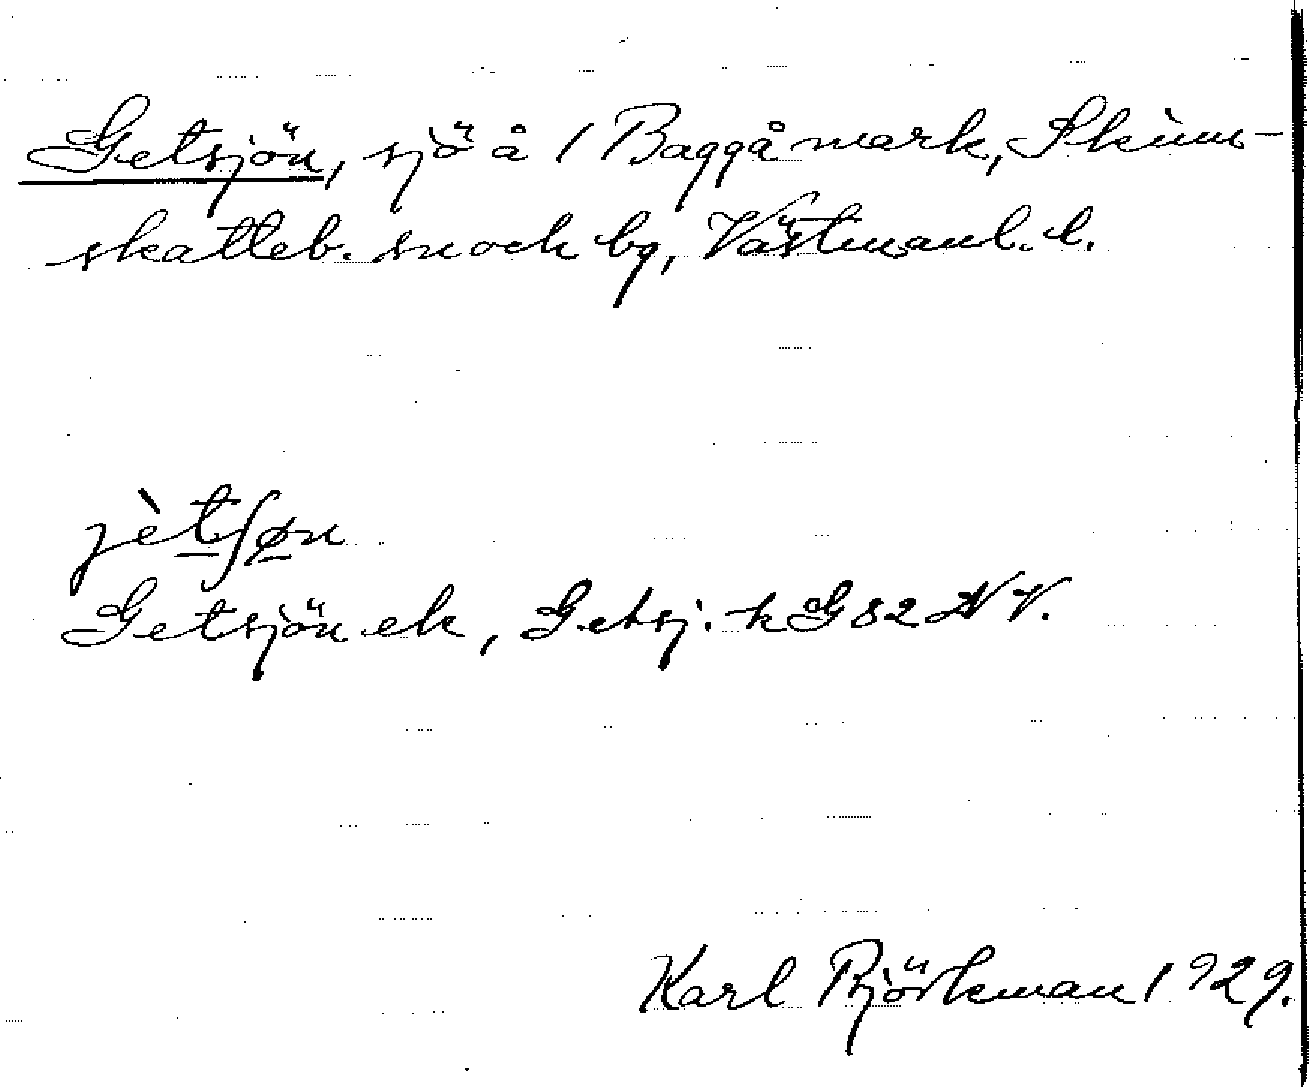 Getsjön, sjö å 1 Baggå mark, Skinn-
skatteb. sn och bg, Västmanl. l.
jètʃøn
Getsjön ek, Getsj. k G 82 NV.
Karl Björkman 1929.